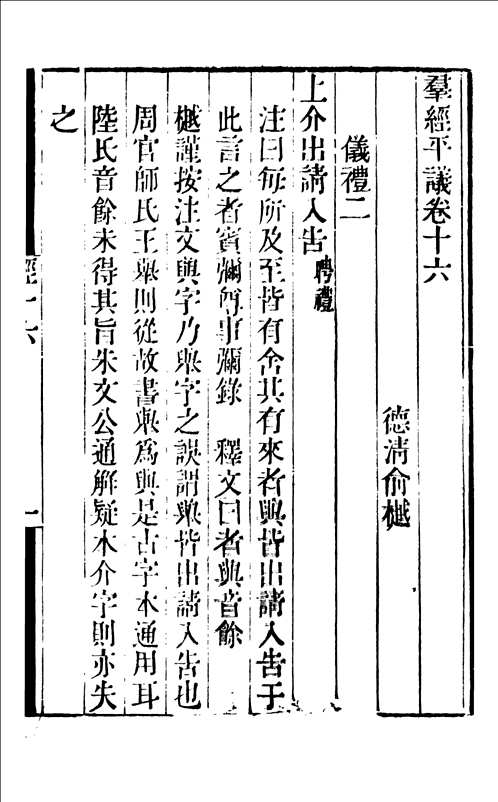 羣經平議卷十六
德清俞樾
儀禮二
上介出請入告聘禮
注曰每所及至皆有舍其有來者與皆出請入告于
此言之者賓彌尊事彌錄 釋文曰者與音餘
樾謹按注文與字乃舉字之誤謂舉皆出請入告也
周官師氏王舉則從故書舉爲與是古字本通用耳
陸氏音餘未得其旨朱文公通解疑本介字則亦失
之
經十六
一